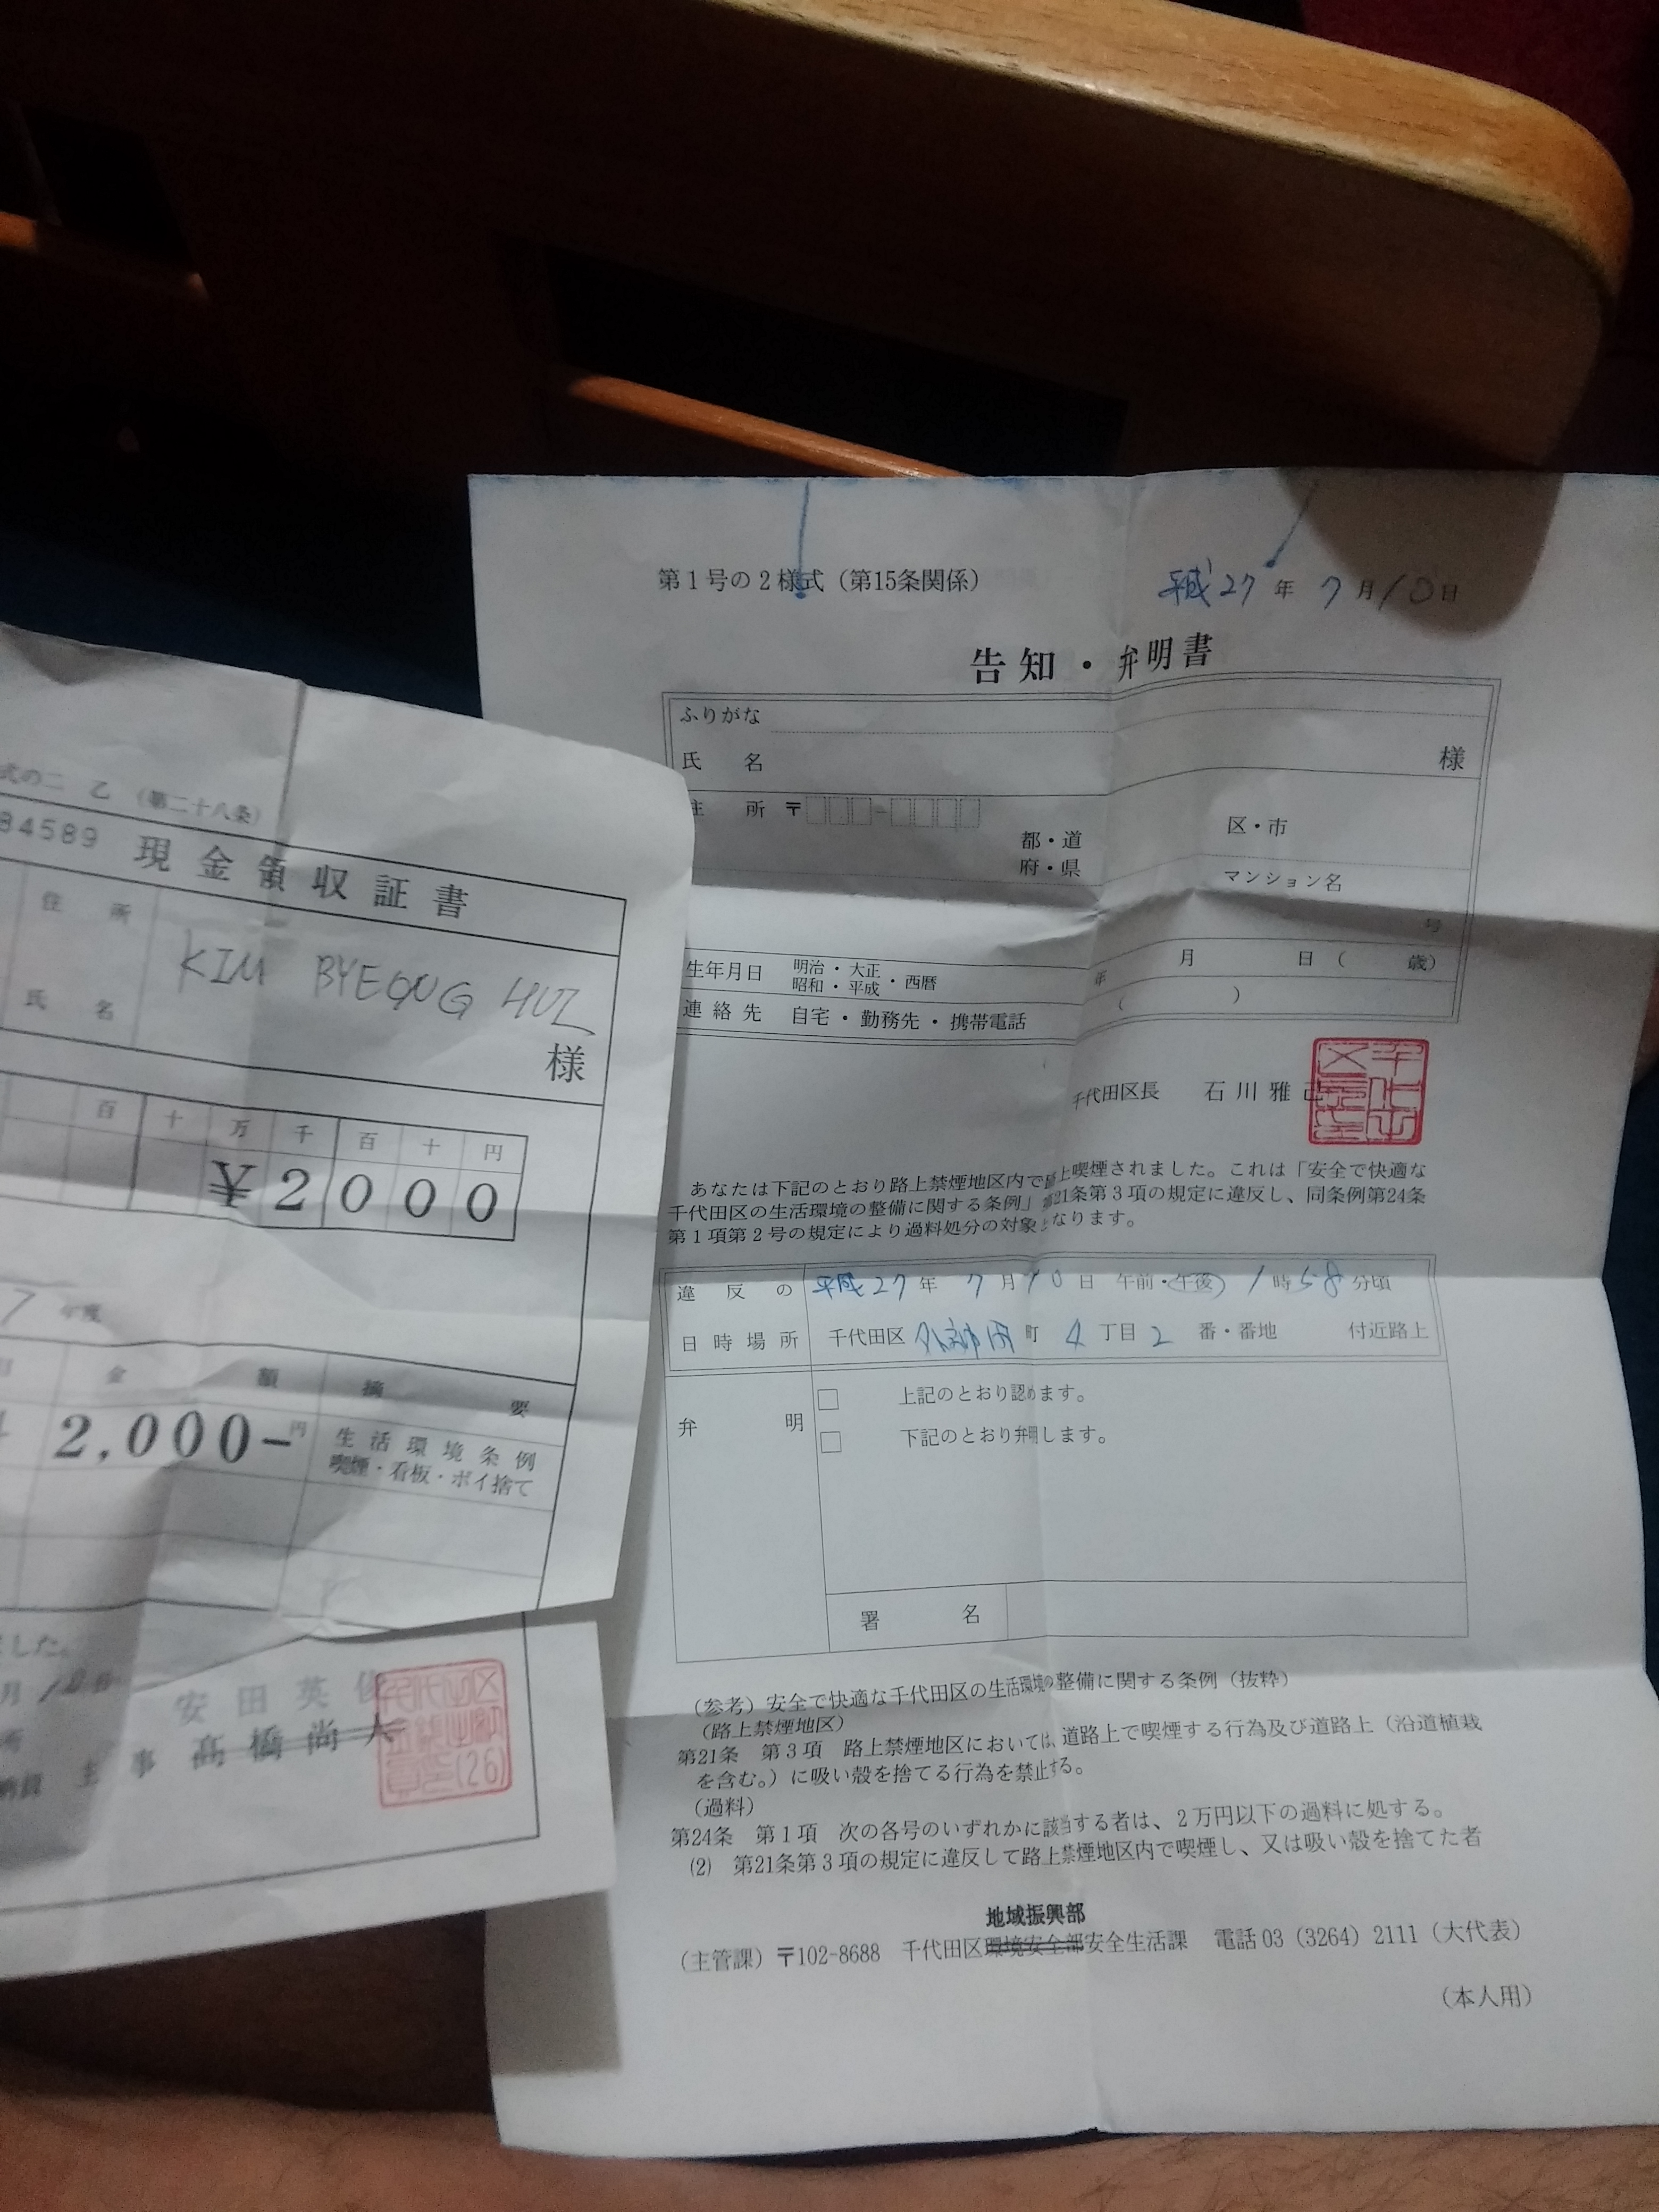 式の二 乙 (第二十八条)
84589 現金領収証書
住所
KIM BYEONG HUI
氏名
様
百 十 万 千 百 十 円
¥2000
7 年度
金額 摘要
2,000-円 生活環境条例
喫煙・看板・ポイ捨て
ました。
月
安田英
主事 高橋尚
(26)
第1号の2様式(第15条関係)
平成27年7月10日
告知・弁明書
ふりがな
氏名 様
住所 〒
都・道 区・市
府・県 マンション名
号
生年月日 明治・大正 ・西暦 年 月 日( 歳)
昭和・平成
連絡先 自宅・勤務先・携帯電話 ( )
千代田区長 石川雅己
あなたは下記のとおり路上禁煙地区内で路上喫煙されました。これは「安全で快適な
千代田区の生活環境の整備に関する条例」第21条第3項の規定に違反し、同条例第24条
第1項第2号の規定により過料処分の対象となります。
違反の 平成27年7月10日 午前・午後 1時58分頃
日時場所 千代田区 外神田 町 4 丁目 2 番・番地 付近路上
弁明 □ 上記のとおり認めます。
□ 下記のとおり弁明します。
署名
(参考)安全で快適な千代田区の生活環境の整備に関する条例(抜粋)
(路上禁煙地区)
第21条 第3項 路上禁煙地区においては、道路上で喫煙する行為及び道路上(沿道植栽
を含む。)に吸い殻を捨てる行為を禁止する。
(過料)
第24条 第1項 次の各号のいずれかに該当する者は、2万円以下の過料に処する。
(2) 第21条第3項の規定に違反して路上禁煙地区内で喫煙し、又は吸い殻を捨てた者
地域振興部
(主管課)〒102-8688 千代田区環境安全部安全生活課 電話03(3264)2111(大代表)
(本人用)